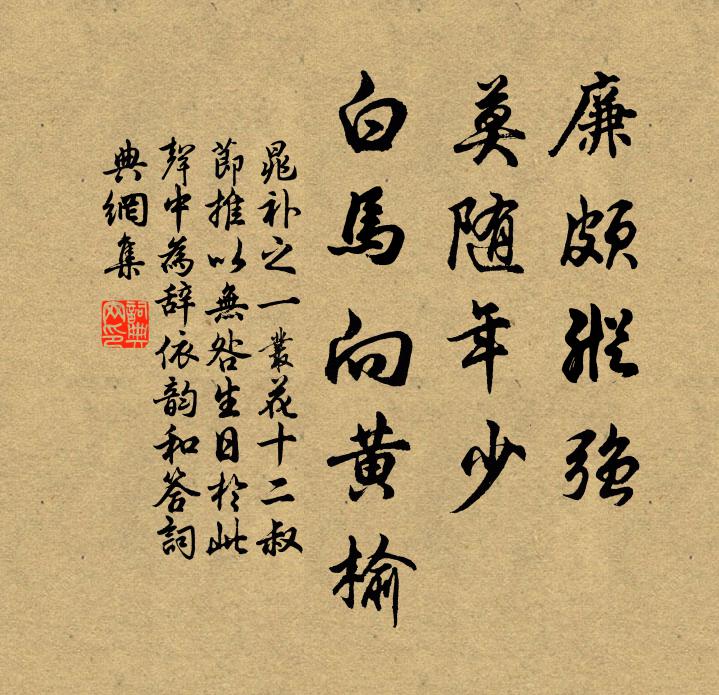 廉頗縱強
莫随年少
白馬向黄榆
晁補之一叢花十二叔
節推以無咎生日於此
聲中為辞依韵和答詞
典網集
詞典
网印